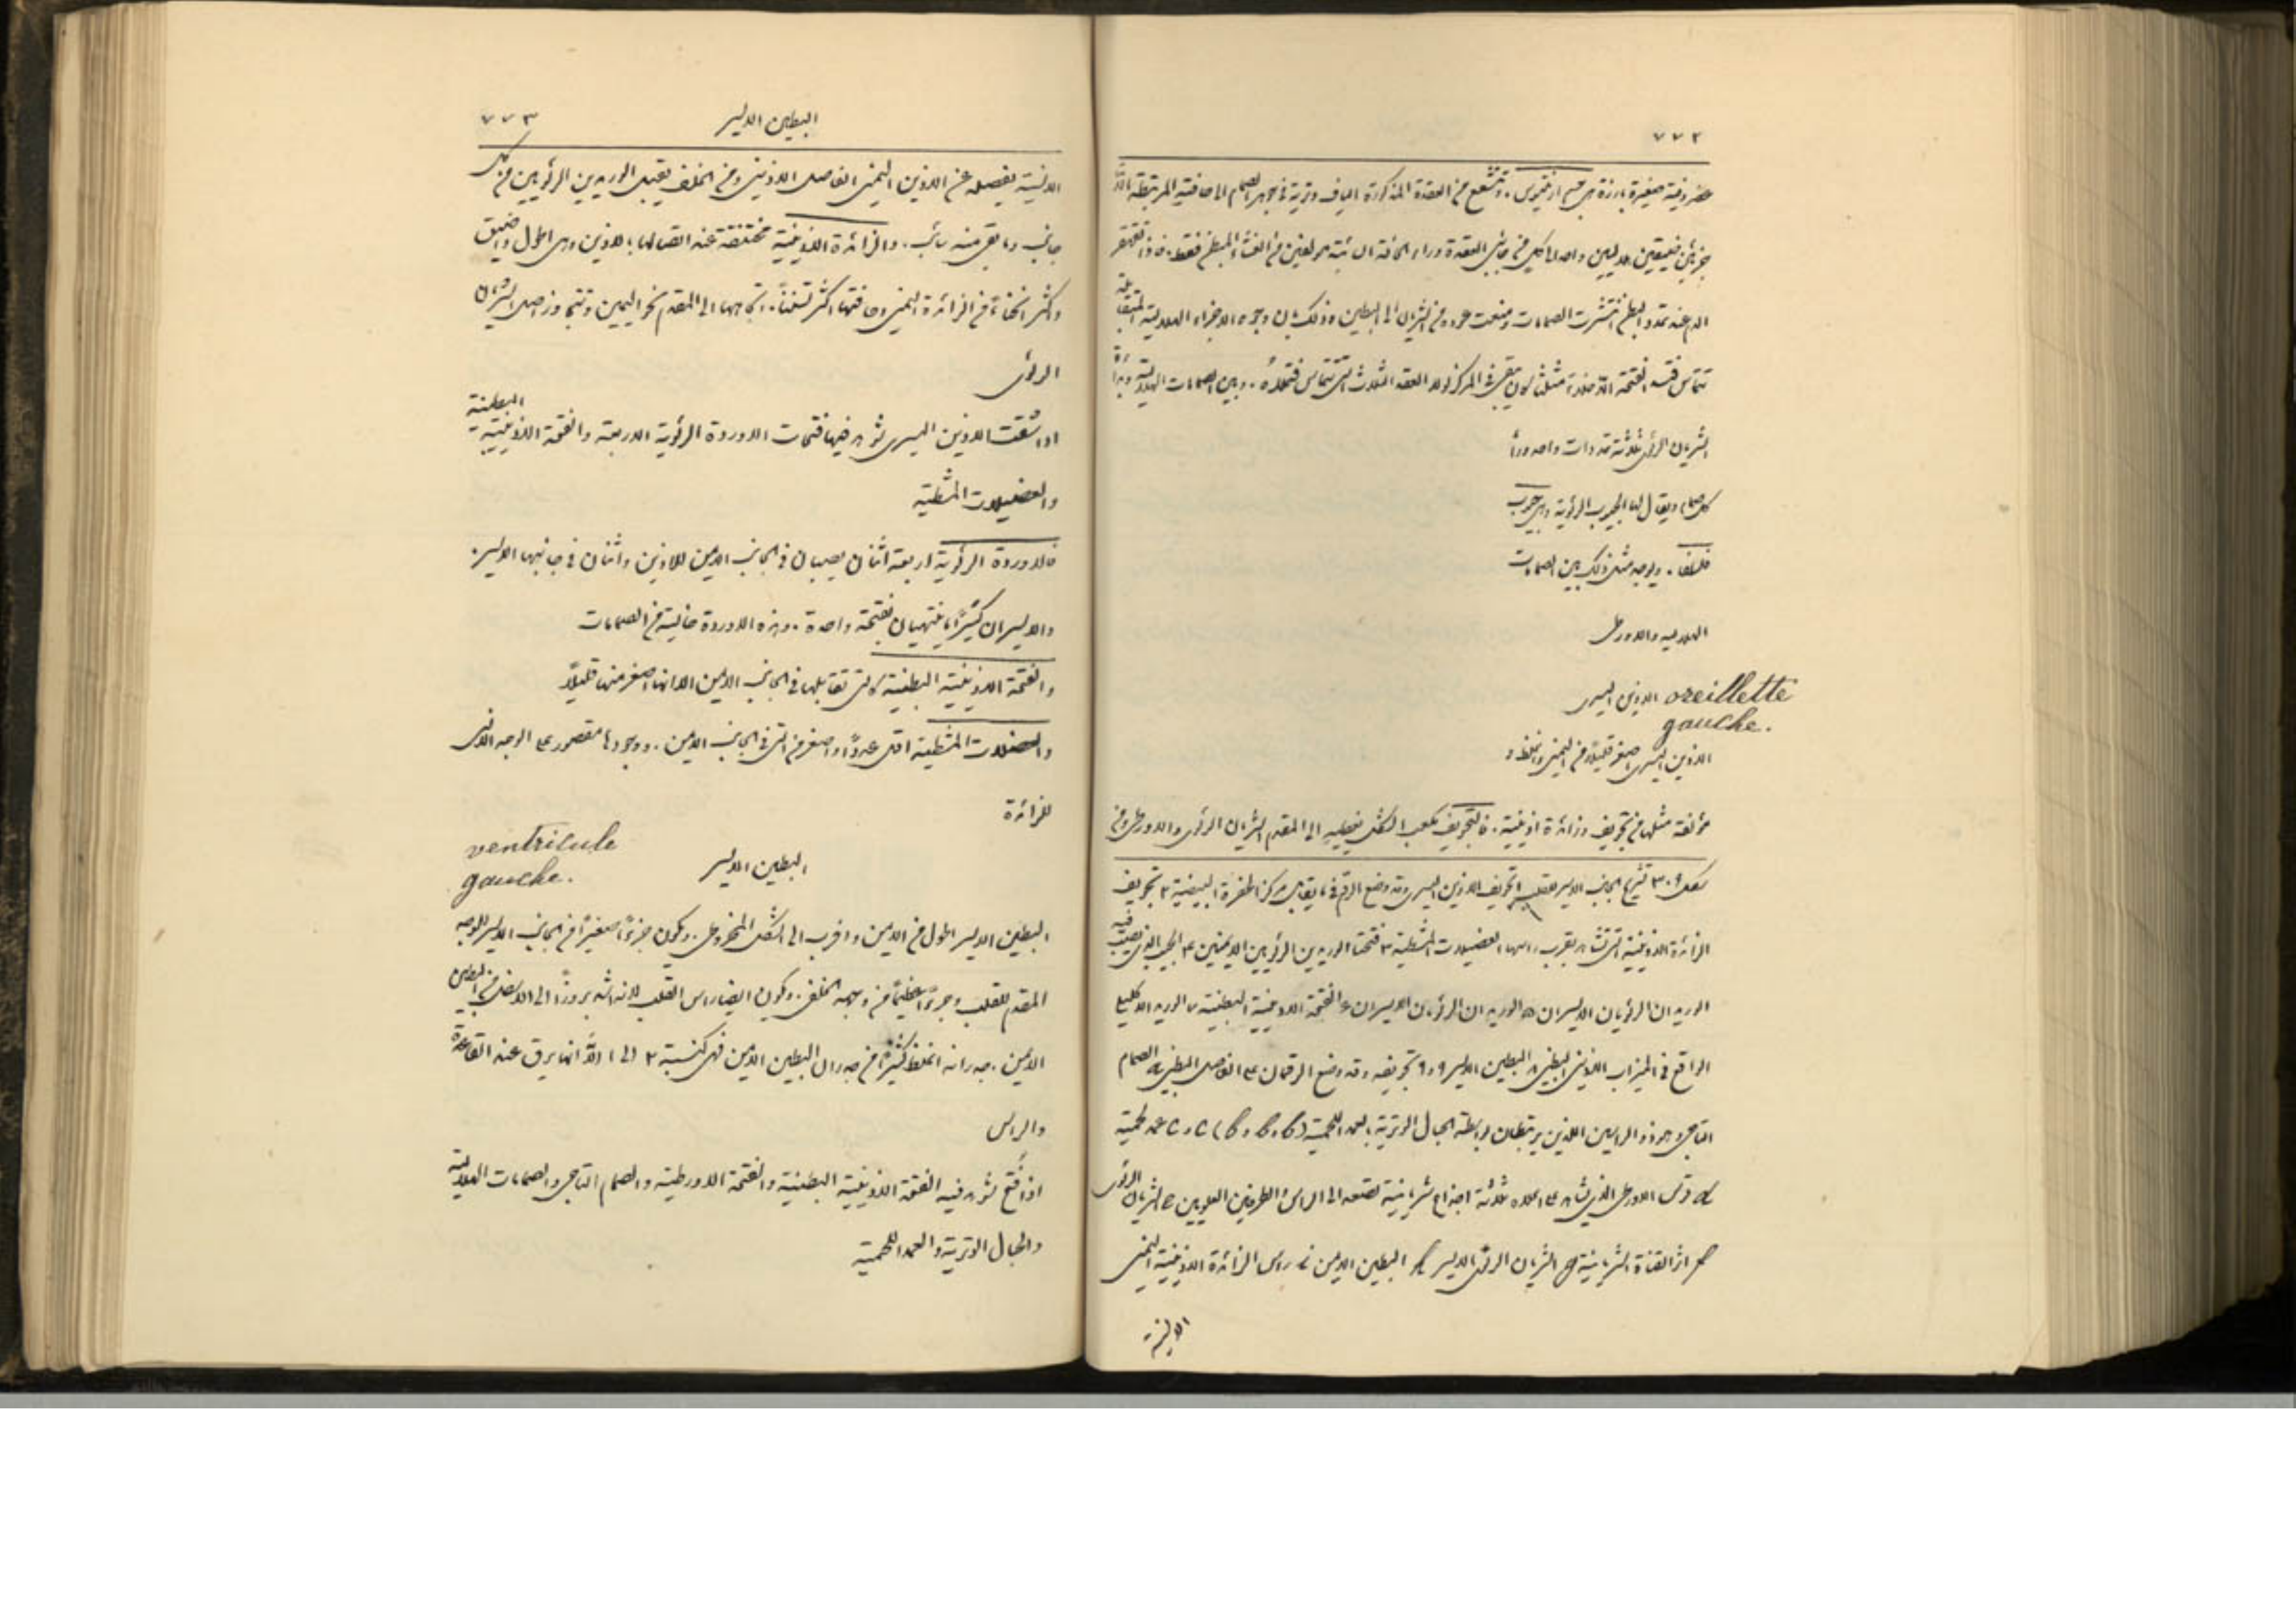 ٧٧٢
غضروفية صغيرة بارزة هي جسم ارنتيوس. وتتشعع من العقدة المذكورة الياف وترية في جوهر الصمام الى حافتيه المرتبطة الّا
جزئين ضيقين هلاليين واحد لكل من جانبي العقدة وراء الحافة السائبة مولفين من الغشاء المبطن فقط. فاذا تقهقر
الدم عند تمدد البطين انتشرت الصمامات ومنعت عوده من الشريان الى البطين وذلك بان وجوه الاجزاء الهلالية المتقابلة
تتماس فتسد الفتحة الّا خلاءً مثلثًا يكون يبقى في المركز لولا العقد الثلاث التي تتماس فتملأه. وبين الصمامات الهلالية ومبدأ
الشريان الرئوي ثلاثة تمددات واحد وراء
كل صمام ويقال لها الجيوب الرئوية وهي جيوب
فلسلفا. ويوجد مثل ذلك بين الصمامات
الهلالية والاورطى
الاذين اليسرى oreillette
gauche.
الاذين اليسرى اصغر قليلًا من اليمنى واغلظ و
مؤلفة مثلها من تجويف وزائدة اذينية. فالتجويف مكعب الشكل يغطيه الى المقدم الشريان الرئوي والاورطى ومن
شكل ٣٠٩ تشريح الجانب الايسر للقلب ١ تجويف الاذين اليسرى وقد وضع الرقم في ما يقابل مركز الحفرة البيضية ٢ تجويف
الزائدة الاذينية التي تشاهد بقرب راسها العضيلات المشطية ٣ فتحتا الوريدين الرئويين الايمنين ٤ الجيب الذي يصب فيه
الوريدان الرئويان الايسران ٥ الوريدان الرئويان الايسران ٦ الفتحة الاذينية البطينية ٧ الوريد الاكليلي
الواقع في الميزاب الاذيني البطيني ٨ البطين الايسر ٩ و٩ تجويفه وقد وضع الرقمان على الفاصل البطيني a الصمام
التاجي وهو ذو الراسين اللذين يرتبطان بواسطة الحبال الوترية بالعمد اللحمية (b و b و b) c و c عمد لحمية
d قوس الاورطى الذي يشاهد على اعلاه ثلاثة اجذاع شريانية تصعد الى الراس والطرفين العلويين e الشريان الرئوي
f اثر القناة الشريانية g الشريان الرئوي الايسر h البطين الايمن i راس الزائدة الاذينية اليمنى
٧٧٣
البطين الايسر
الانسية يفصله عن الاذين اليمنى الفاصل الاذيني ومن الخلف يقبل الوريدين الرئويين من كل
جانب وما بقي منه سائب. والزائدة الاذينية مختنقة عند اتصالها بالاذين وهي اطول واضيق
واكثر انحناءً من الزائدة اليمنى وحافتها اكثر تسننًا. واتجاهها الى المقدم نحو اليمين وتتجاوز اصل الشريان
الرئوي
اذا شقت الاذين اليسرى تشاهد فيها فتحات الاوردة الرئوية الاربعة والفتحة الاذينية البطينية
والعضيلات المشطية
فالاوردة الرئوية اربعة اثنان يصبان في الجانب الايمن للاذين واثنان في جانبها الايسر.
والايسران كثيرًا ما ينتهيان بفتحة واحدة. وهذه الاوردة خالية من الصمامات
والفتحة الاذينية البطينية كالتي تقابلها في الجانب الايمن الا انها اصغر منها قليلًا
والعضلات المشطية اقل عددًا واصغر من التي في الجانب الايمن. ووجودها مقصور على الوجه الانسي
للزائدة
البطين الايسر
ventricule
gauche.
البطين الايسر اطول من الايمن واقرب الى الشكل المخروطي. ويكون جزءًا صغيرًا من الجانب الايسر للوجه
المقدم للقلب وجزءًا عظيمًا من وجهه الخلفي. ويكون ايضا راس القلب لانه اشد بروزًا الى الاسفل من البطين
الايمن. جدرانه اغلظ كثيرًا من جدران البطين الايمن فهي كنسبة ٢ الى ١ الّا انها يرق عند القاعدة
والراس
اذا فُتح تشاهد فيه الفتحة الاذينية البطينية والفتحة الاورطية والصمام التاجي والصمامات الهلالية
والحبال الوترية والعمد اللحمية